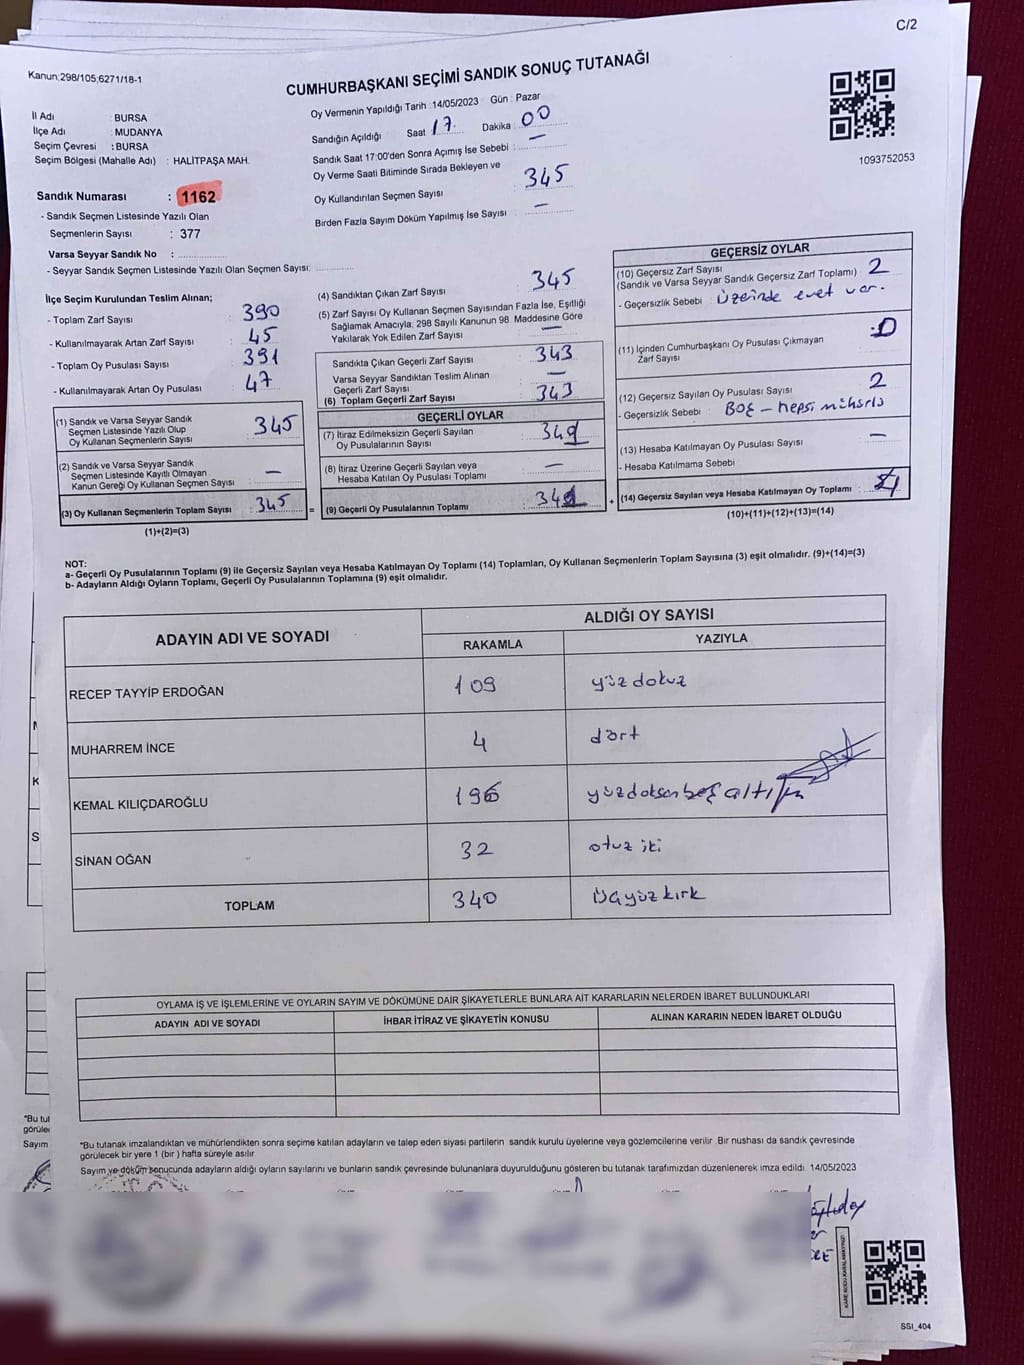 C/2
Kanun;298/105,6271/18-1
CUMHURBAŞKANI SEÇİMİ SANDIK SONUÇ TUTANAĞI
İl Adı : BURSA
İlçe Adı : MUDANYA
Seçim Çevresi : BURSA
Seçim Bölgesi (Mahalle Adı) : HALİTPAŞA MAH.
Oy Vermenin Yapıldığı Tarih :14/05/2023 Gün : Pazar
Sandığın Açıldığı Saat 17. Dakika : 00
Sandık Saat 17:00'den Sonra Açımış İse Sebebi : —
Oy Verme Saati Bitiminde Sırada Bekleyen ve
Oy Kullandırılan Seçmen Sayısı : 345
Birden Fazla Sayım Döküm Yapılmış İse Sayısı : —
1093752053
Sandık Numarası : 1162
- Sandık Seçmen Listesinde Yazılı Olan
Seçmenlerin Sayısı : 377
Varsa Seyyar Sandık No :
- Seyyar Sandık Seçmen Listesinde Yazılı Olan Seçmen Sayısı:
İlçe Seçim Kurulundan Teslim Alınan;
- Toplam Zarf Sayısı : 390
- Kullanılmayarak Artan Zarf Sayısı : 45
- Toplam Oy Pusulası Sayısı : 391
- Kullanılmayarak Artan Oy Pusulası : 47
(1) Sandık ve Varsa Seyyar Sandık
Seçmen Listesinde Yazılı Olup
Oy Kullanan Seçmenlerin Sayısı : 345
(2) Sandık ve Varsa Seyyar Sandık
Seçmen Listesinde Kayıtlı Olmayan
Kanun Gereği Oy Kullanan Seçmen Sayısı : —
(3) Oy Kullanan Seçmenlerin Toplam Sayısı : 345
(1)+(2)=(3)
(4) Sandıktan Çıkan Zarf Sayısı : 345
(5) Zarf Sayısı Oy Kullanan Seçmen Sayısından Fazla İse, Eşitliği
Sağlamak Amacıyla; 298 Sayılı Kanunun 98. Maddesine Göre
Yakılarak Yok Edilen Zarf Sayısı : —
Sandıkta Çıkan Geçerli Zarf Sayısı : 343
Varsa Seyyar Sandıktan Teslim Alınan
Geçerli Zarf Sayısı : —
(6) Toplam Geçerli Zarf Sayısı : 343
GEÇERLİ OYLAR
(7) İtiraz Edilmeksizin Geçerli Sayılan
Oy Pusulalarının Sayısı :
(8) İtiraz Üzerine Geçerli Sayılan veya
Hesaba Katılan Oy Pusulası Toplamı : —
= (9) Geçerli Oy Pusulalarının Toplamı :
GEÇERSİZ OYLAR
(10) Geçersiz Zarf Sayısı
(Sandık ve Varsa Seyyar Sandık Geçersiz Zarf Toplamı) : 2
- Geçersizlik Sebebi : Üzerinde evet var.
(11) İçinden Cumhurbaşkanı Oy Pusulası Çıkmayan
Zarf Sayısı : 0
(12) Geçersiz Sayılan Oy Pusulası Sayısı : 2
- Geçersizlik Sebebi : Boş — hepsi mühürlü
(13) Hesaba Katılmayan Oy Pusulası Sayısı : —
- Hesaba Katılmama Sebebi
+ (14) Geçersiz Sayılan veya Hesaba Katılmayan Oy Toplamı : 4
(10)+(11)+(12)+(13)=(14)
NOT:
a- Geçerli Oy Pusulalarının Toplamı (9) ile Geçersiz Sayılan veya Hesaba Katılmayan Oy Toplamı (14) Toplamları, Oy Kullanan Seçmenlerin Toplam Sayısına (3) eşit olmalıdır. (9)+(14)=(3)
b- Adayların Aldığı Oyların Toplamı, Geçerli Oy Pusulalarının Toplamına (9) eşit olmalıdır.
ADAYIN ADI VE SOYADI
ALDIĞI OY SAYISI
RAKAMLA YAZIYLA
RECEP TAYYİP ERDOĞAN 109 yüz dokuz
MUHARREM İNCE 4 dört
KEMAL KILIÇDAROĞLU 196 yüzdoksan beş altı
SİNAN OĞAN 32 otuz iki
TOPLAM 340 üçyüz kırk
OYLAMA İŞ VE İŞLEMLERİNE VE OYLARIN SAYIM VE DÖKÜMÜNE DAİR ŞİKAYETLERLE BUNLARA AİT KARARLARIN NELERDEN İBARET BULUNDUKLARI
ADAYIN ADI VE SOYADI İHBAR İTİRAZ VE ŞİKAYETİN KONUSU ALINAN KARARIN NEDEN İBARET OLDUĞU
*Bu tutanak imzalandıktan ve mühürlendikten sonra seçime katılan adayların ve talep eden siyasi partilerin sandık kurulu üyelerine veya gözlemcilerine verilir Bir nushası da sandık çevresinde
görülecek bir yere 1 (bir) hafta süreyle asılır
Sayım ve döküm sonucunda adayların aldığı oyların sayılarını ve bunların sandık çevresinde bulunanlara duyurulduğunu gösteren bu tutanak tarafımızdan düzenlenerek imza edildi. 14/05/2023
*Bu tut
görülec
Sayım
SSI_404